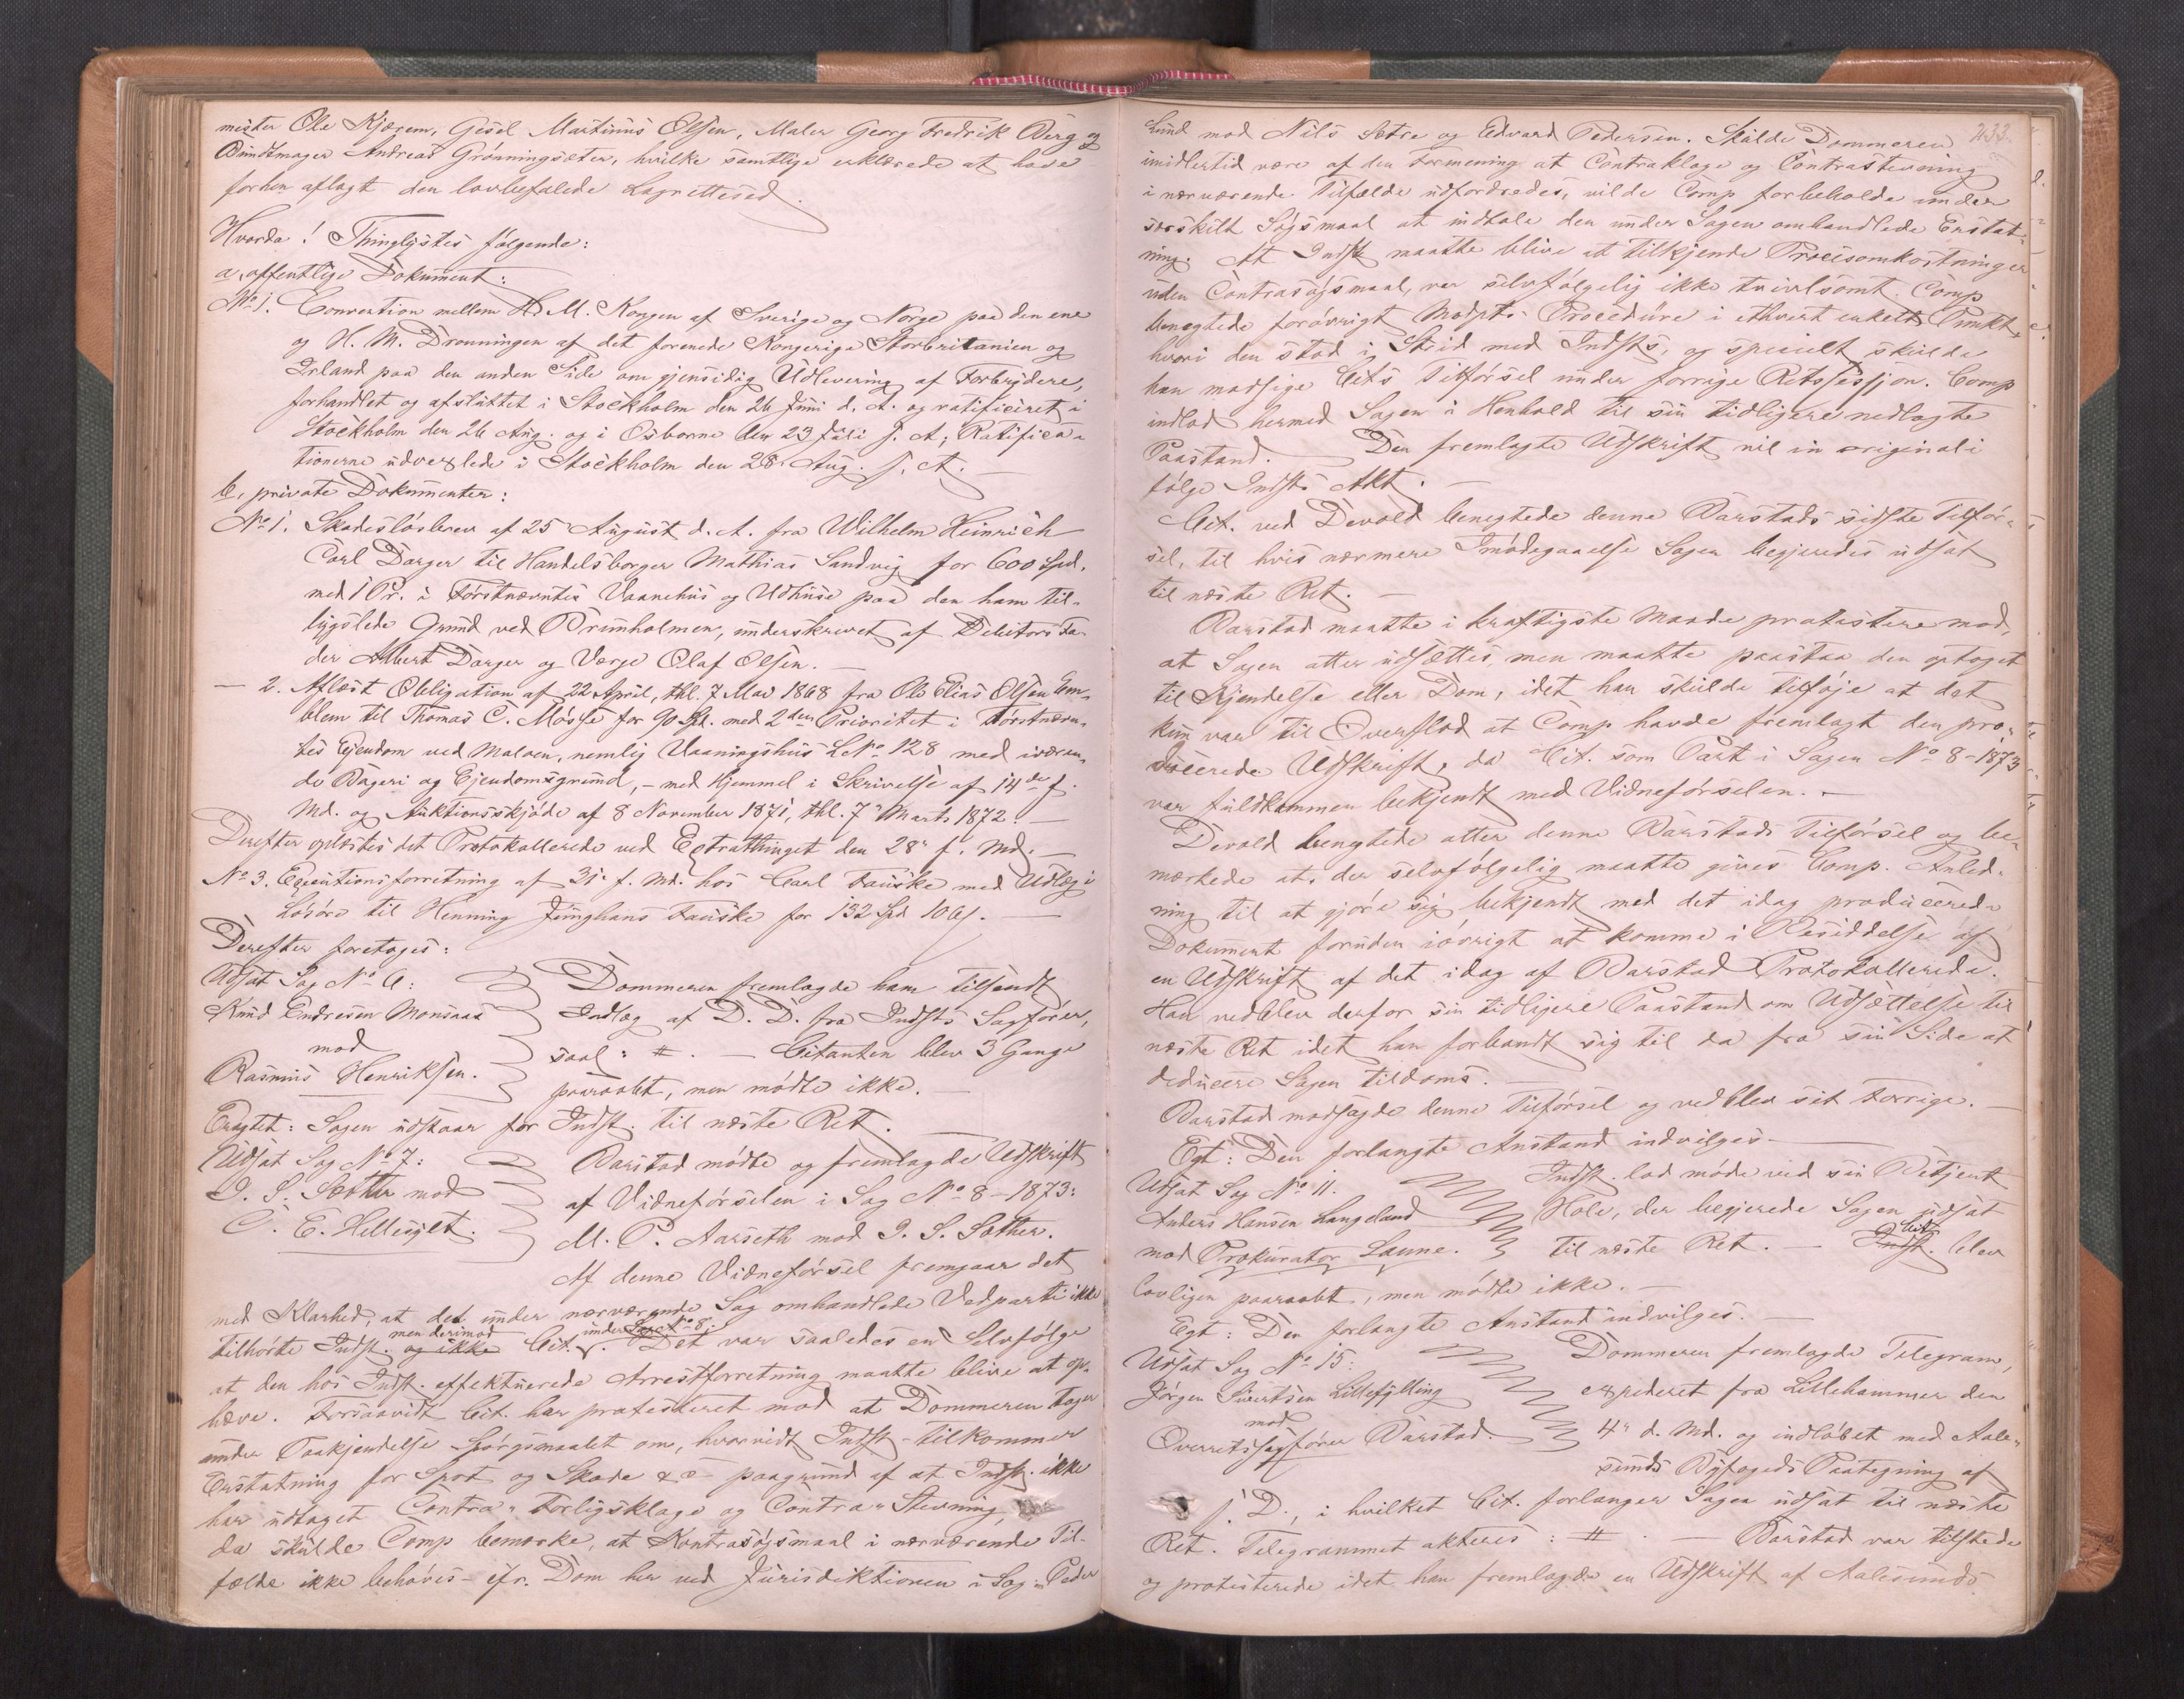 mester Ole Kjærem, Gesel Martinus Olsen, Maler Georg Fredrik Berg og
Bundtmager Andreas Grönningsæter, hvilke samtlige erklærede at have
forhen aflagt den lovbefalede Lagrettesed.
Hvorda! Thinglystes følgende:
a, offentlige Dokument:
No 1. Convention mellem H. M. Kongen af Sverige og Norge paa den ene
og H. M. Dronningen af det forenede Kongerige Storbritanien og
Irland paa den anden Side om gjensidig Udlevering af Forbrydere,
forhandlet og afsluttet i Stockholm den 26 Juni d. A. og ratificeret i
Stockholm den 26 Aug. og i Osborne den 23 Juli s. A; Ratifica-
tionerne udvexlede i Stockholm den 28. Aug. s. A. —
b, private Dokumenter:
No 1. Skadeslösbrev af 25 August d. A. fra Wilhelm Heinrich
Carl Darger til Handelsborger Mathias Sandvig for 600 Spd.
med 1 Pr. i Förstnævntes Vaanehus og Udhuse paa den ham til-
bygslede Grund ved Brunholmen, underskrevet af Debitors Fa-
der Albert Darger og Værge Olaf Olsen. —
— 2. Aflæst Obligation af 22 April, thl. 7 Mai 1868 fra Ole Elias Olsen Em-
blem til Thomas C. Mösse for 90 Spd. med 2den Prioritet i Förstnævn-
tes Ejendom ved Molven, nemlig Vaaningshus L No 128 med iværen-
de Bageri og Ejendomsgrund, – med Hjemmel i Skrivelse af 14de f.
Md. og Auktionsskjöde af 8 November 1871, thl. 7 Marts 1872. —
Derefter oplæstes det Protokollerede ved Extrathinget den 28 f. Md. —
No 3. Executionsforretning af 31 f. Md. hos Carl Fauske med Udlæg i
Lösöre til Henning Junghans Fauske for 132 Spd 106 s. —
Derefter foretoges:
Udsat Sag No 6:
Knud Endresen Monsaas
mod
Rasmus Henriksen.
Dommeren fremlagde ham tilsendt
Indlæg af D. D. fra Indsts Sagförer,
saal: #. — Citanten blev 3 Gange
paaraabt, men mödte ikke. —
Eragtet: Sagen udstaar for Indst. til næste Ret. —
Udsat Sag No 7:
I. S. Sæther mod
C. E. Hellesylt.
Barstad mödte og fremlagde Udskrift
af Vidneförselen i Sag No 8 – 1873:
M. P. Aarseth mod I. S. Sæther.
Af denne Vidneförsel fremgaar det
med Klarhed, at det under nærværende Sag omhandlede Vedparti ikke
tilhörte Indst. og ikke men derimod Cit. under Sag No 8. Det var saaledes en Selvfölge
at den hos Indst. effektuerede Arrestforretning maatte blive at op-
hæve. Forsaavidt Cit. har protesteret mod at Dommeren tager
under Paakjendelse Spörgsmaalet om, hvorvidt Indst. tilkommer
Erstatning for Spot og Skade &c paagrund af at Indst. ikke
har udtaget Contra-Forligsklage og Contra-Stevning,
da skulde Comp bemærke, at Kontrasögsmaal i nærværende Til-
fælde ikke behöves – cfr. Dom her ved Jurisdiktionen i Sag: Peder
233.
Lund mod Nils Sætre og Edvard Pedersen. Skulde Dommeren
imidlertid være af den Formening at Contraklage og Contrastevning
i nærværende Tilfælde udfordredes, vilde Comp forbeholde under
særskilt Sögsmaal at indtale den under Sagen omhandlede Erstat-
ning. At Indst maatte blive at tilkjende Procesomkostninger
uden Contrasögsmaal, var selvfölgelig ikke tvivlsomt. Comp
benægtede forövrigt Modpts Procedure i ethvert enkelt Punkt,
hvori den stod i Strid med Indsts, og specielt skulde
han modsige Cits Tilförsel under forrige Retssession. Comp
indlod hermed Sagen i Henhold til sin tidligere nedlagte
Paastand. — Den fremlagte Udskrift vil in originali
fölge Indsts Akt. —
Cit. ved Devold benegtede denne Barstads sidste Tilför-
sel, til hvis nærmere Imödegaaelse Sagen begjeredes udsat
til næste Ret. —
Barstad maatte i kraftigste Maade protestere mod,
at Sagen atter udsættes, men maatte paastaa den optaget
til Kjendelse eller Dom, idet han skulde tilföje at det
kun var til Overflod at Comp havde fremlagt den pro-
ducerede Udskrift, da Cit. som Part i Sagen No 8 – 1873
var fuldkommen bekjendt med Vidneförselen. —
Devold benegtede atter denne Barstads Tilförsel og be-
mærkede at der selvfölgelig maatte gives Comp. Anled-
ning til at gjöre sig bekjendt med det idag producerede
Dokument foruden iövrigt at komme i Besiddelse af
en Udskrift af det idag af Barstad Protokollerede.
Han vedblev derfor sin tidligere Paastand om Udsættelse til
næste Ret idet han forbandt sig til da fra sin Side at
deducere Sagen tildoms. —
Barstad modsagde denne Tilförsel og vedblev sit Forrige. —
Egt: Den forlangte Anstand indvilges. —
Udsat Sag No 11.
Anders Hansen Langeland
mod Prokurator Lanne.
Indst. lod möde ved sin Betjent
Hole, der begjerede Sagen udsat
til næste Ret. — Indst. Cit. blev
lovligen paaraabt, men mödte ikke. —
Egt: Den forlangte Anstand indvilges. —
Udsat Sag No 15:
Jörgen Sivertsen Lillefylling
mod
Overretssagförer Barstad.
Dommeren fremlagde Telegram,
expederet fra Lillehammer den
4 d. Md. og indlöbet med Aale-
sunds Byfogeds Paategning af
s. D., i hvilket Cit. forlanger Sagen udsat til næste
Ret. Telegrammet akteres: #. — Barstad var tilstede
og protesterede idet han fremlagde en Udskrift af Aalesunds